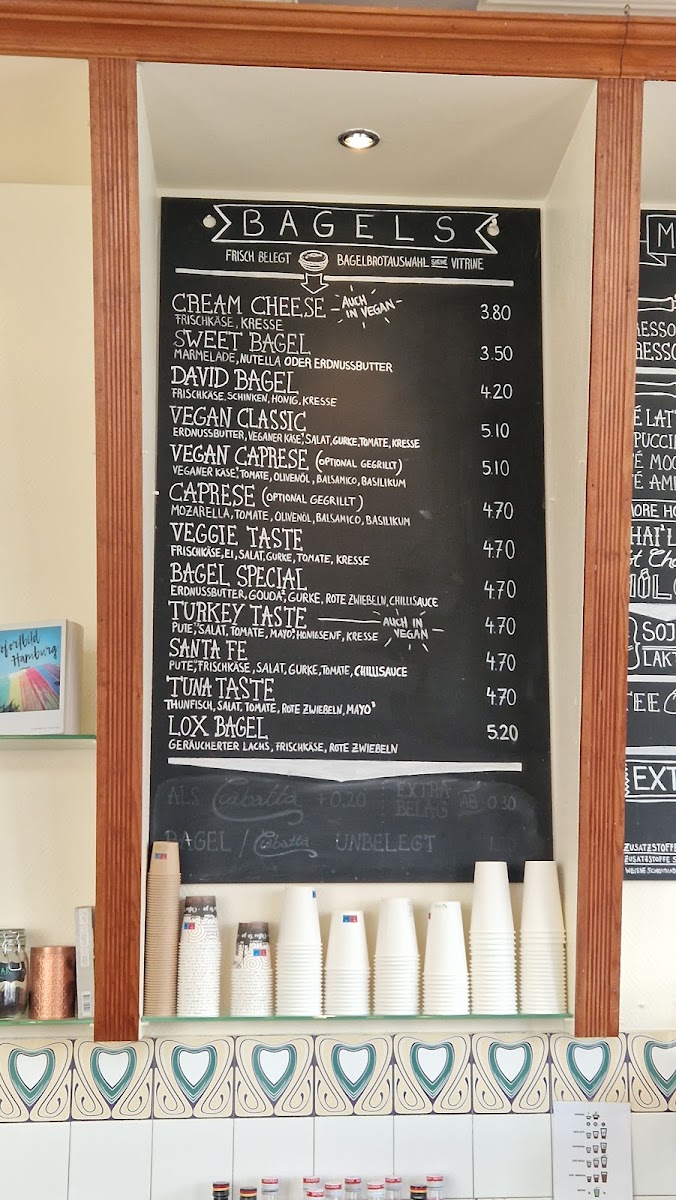 BAGELS
FRISCH BELEGT BAGELBROTAUSWAHL SIEHE VITRINE
CREAM CHEESE - AUCH IN VEGAN - 3.80
FRISCHKÄSE, KRESSE
SWEET BAGEL 3.50
MARMELADE, NUTELLA ODER ERDNUSSBUTTER
DAVID BAGEL 4.20
FRISCHKÄSE, SCHINKEN, HONIG, KRESSE
VEGAN CLASSIC 5.10
ERDNUSSBUTTER, VEGANER KÄSE, SALAT, GURKE, TOMATE, KRESSE
VEGAN CAPRESE (OPTIONAL GEGRILLT) 5.10
VEGANER KÄSE, TOMATE, OLIVENÖL, BALSAMICO, BASILIKUM
CAPRESE (OPTIONAL GEGRILLT) 4.70
MOZARELLA, TOMATE, OLIVENÖL, BALSAMICO, BASILIKUM
VEGGIE TASTE 4.70
FRISCHKÄSE, EI, SALAT, GURKE, TOMATE, KRESSE
BAGEL SPECIAL 4.70
ERDNUSSBUTTER, GOUDA, GURKE, ROTE ZWIEBELN, CHILLISAUCE
TURKEY TASTE - AUCH IN VEGAN - 4.70
PUTE, SALAT, TOMATE, MAYO, HONIGSENF, KRESSE
SANTA FE 4.70
PUTE, FRISCHKÄSE, SALAT, GURKE, TOMATE, CHILLISAUCE
TUNA TASTE 4.70
THUNFISCH, SALAT, TOMATE, ROTE ZWIEBELN, MAYO³
LOX BAGEL 5.20
GERÄUCHERTER LACHS, FRISCHKÄSE, ROTE ZWIEBELN
ALS Ciabatta +0,20 EXTRA BELAG AB 0.30
BAGEL / Ciabatta UNBELEGT
Hamburg
M
RESSO
RESSO
É LATT
PUCCIN
É MOC
É AME
MORE HO
HAI L
SOJ
LAKT
TEE
EXT
ZUSATZSTOFFE
ZUSATZSTOFFE S